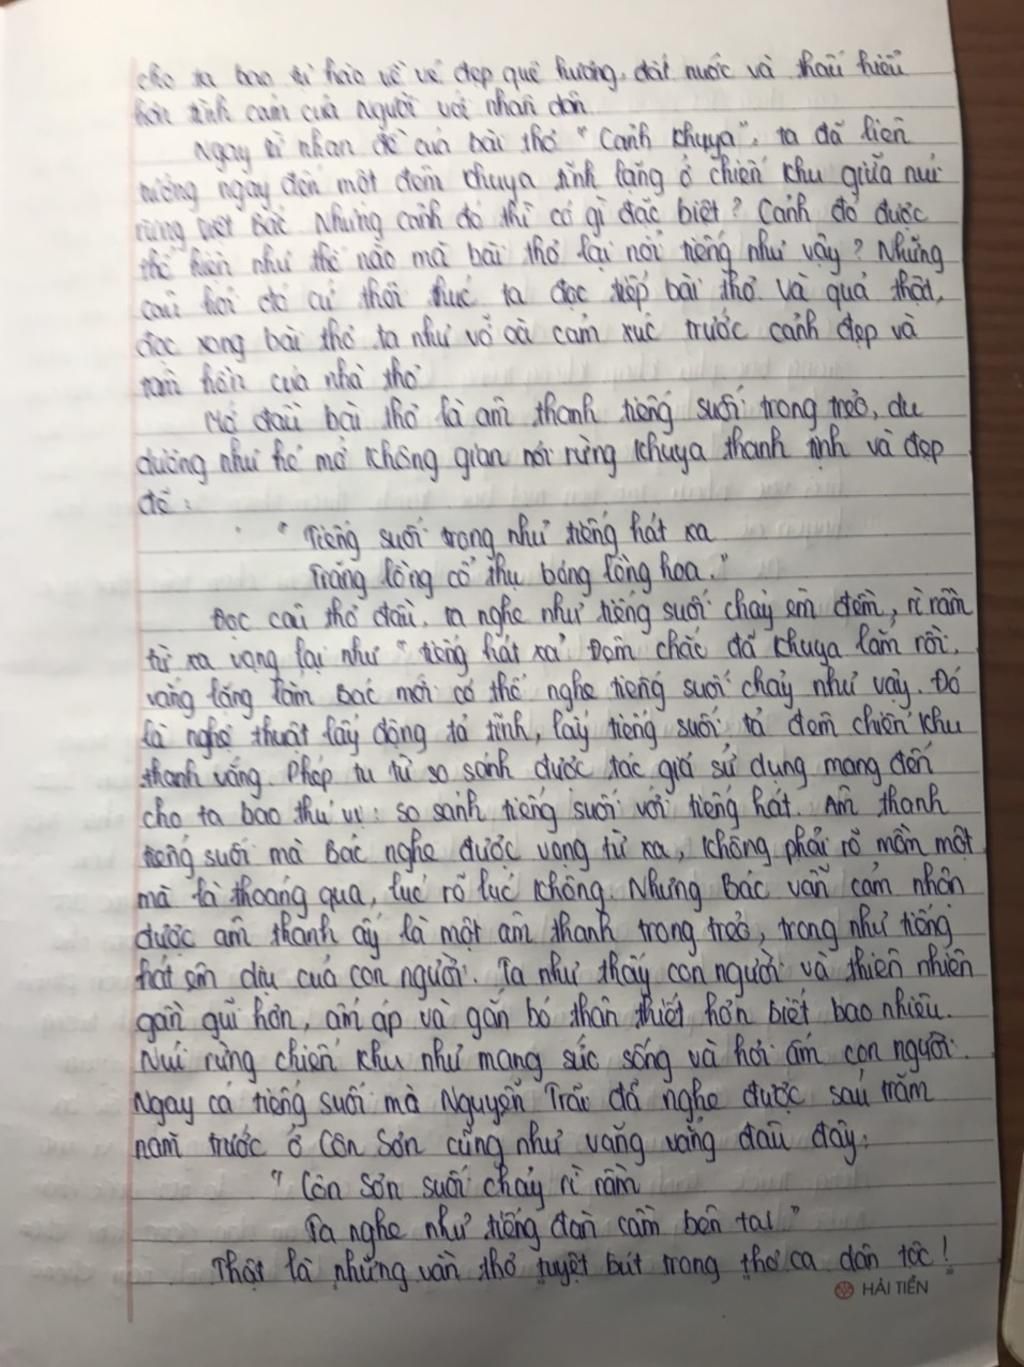 cho ta bao tự hào về vẻ đẹp quê hương, đất nước và thấu hiểu
hơn tình cảm của Người với nhân dân.
Ngay từ nhan đề của bài thơ "Cảnh khuya", ta đã liên
tưởng ngay đến một đêm khuya tĩnh lặng ở chiến khu giữa núi
rừng Việt Bắc. Nhưng cảnh đó thì có gì đặc biệt? Cảnh đó được
thể hiện như thế nào mà bài thơ lại nổi tiếng như vậy? Những
câu hỏi đó cứ thôi thúc ta đọc tiếp bài thơ. Và quả thật,
đọc xong bài thơ ta như vỡ oà cảm xúc trước cảnh đẹp và
tâm hồn của nhà thơ
Mở đầu bài thơ là âm thanh tiếng suối trong trẻo, du
dương như hé mở không gian núi rừng khuya thanh tịnh và đẹp
đẽ:
"Tiếng suối trong như tiếng hát xa
Trăng lồng cổ thụ bóng lồng hoa."
Đọc câu thơ đầu, ta nghe như tiếng suối chảy êm đềm, rì rầm
từ xa vọng lại như "tiếng hát xa". Đêm chắc đã khuya lắm rồi,
vắng lặng lắm Bác mới có thể nghe tiếng suối chảy như vậy. Đó
là nghệ thuật lấy động tả tĩnh, lấy tiếng suối tả đêm chiến khu
thanh vắng. Phép tu từ so sánh được tác giả sử dụng mang đến
cho ta bao thú vị: so sánh tiếng suối với tiếng hát. Âm thanh
tiếng suối mà Bác nghe được vọng từ xa, không phải rõ mồn một
mà là thoáng qua, lúc rõ lúc không. Nhưng Bác vẫn cảm nhận
được âm thanh ấy là một âm thanh trong trẻo, trong như tiếng
hát êm dịu của con người. Ta như thấy con người và thiên nhiên
gần gũi hơn, ấm áp và gắn bó thân thiết hơn biết bao nhiêu.
Núi rừng chiến khu như mang sức sống và hơi ấm con người.
Ngay cả tiếng suối mà Nguyễn Trãi đã nghe được sáu trăm
năm trước ở Côn Sơn cũng như văng vẳng đâu đây:
"Côn Sơn suối chảy rì rầm
Ta nghe như tiếng đàn cầm bên tai"
Thật là những vần thơ tuyệt bút trong thơ ca dân tộc!
HẢI TIẾN